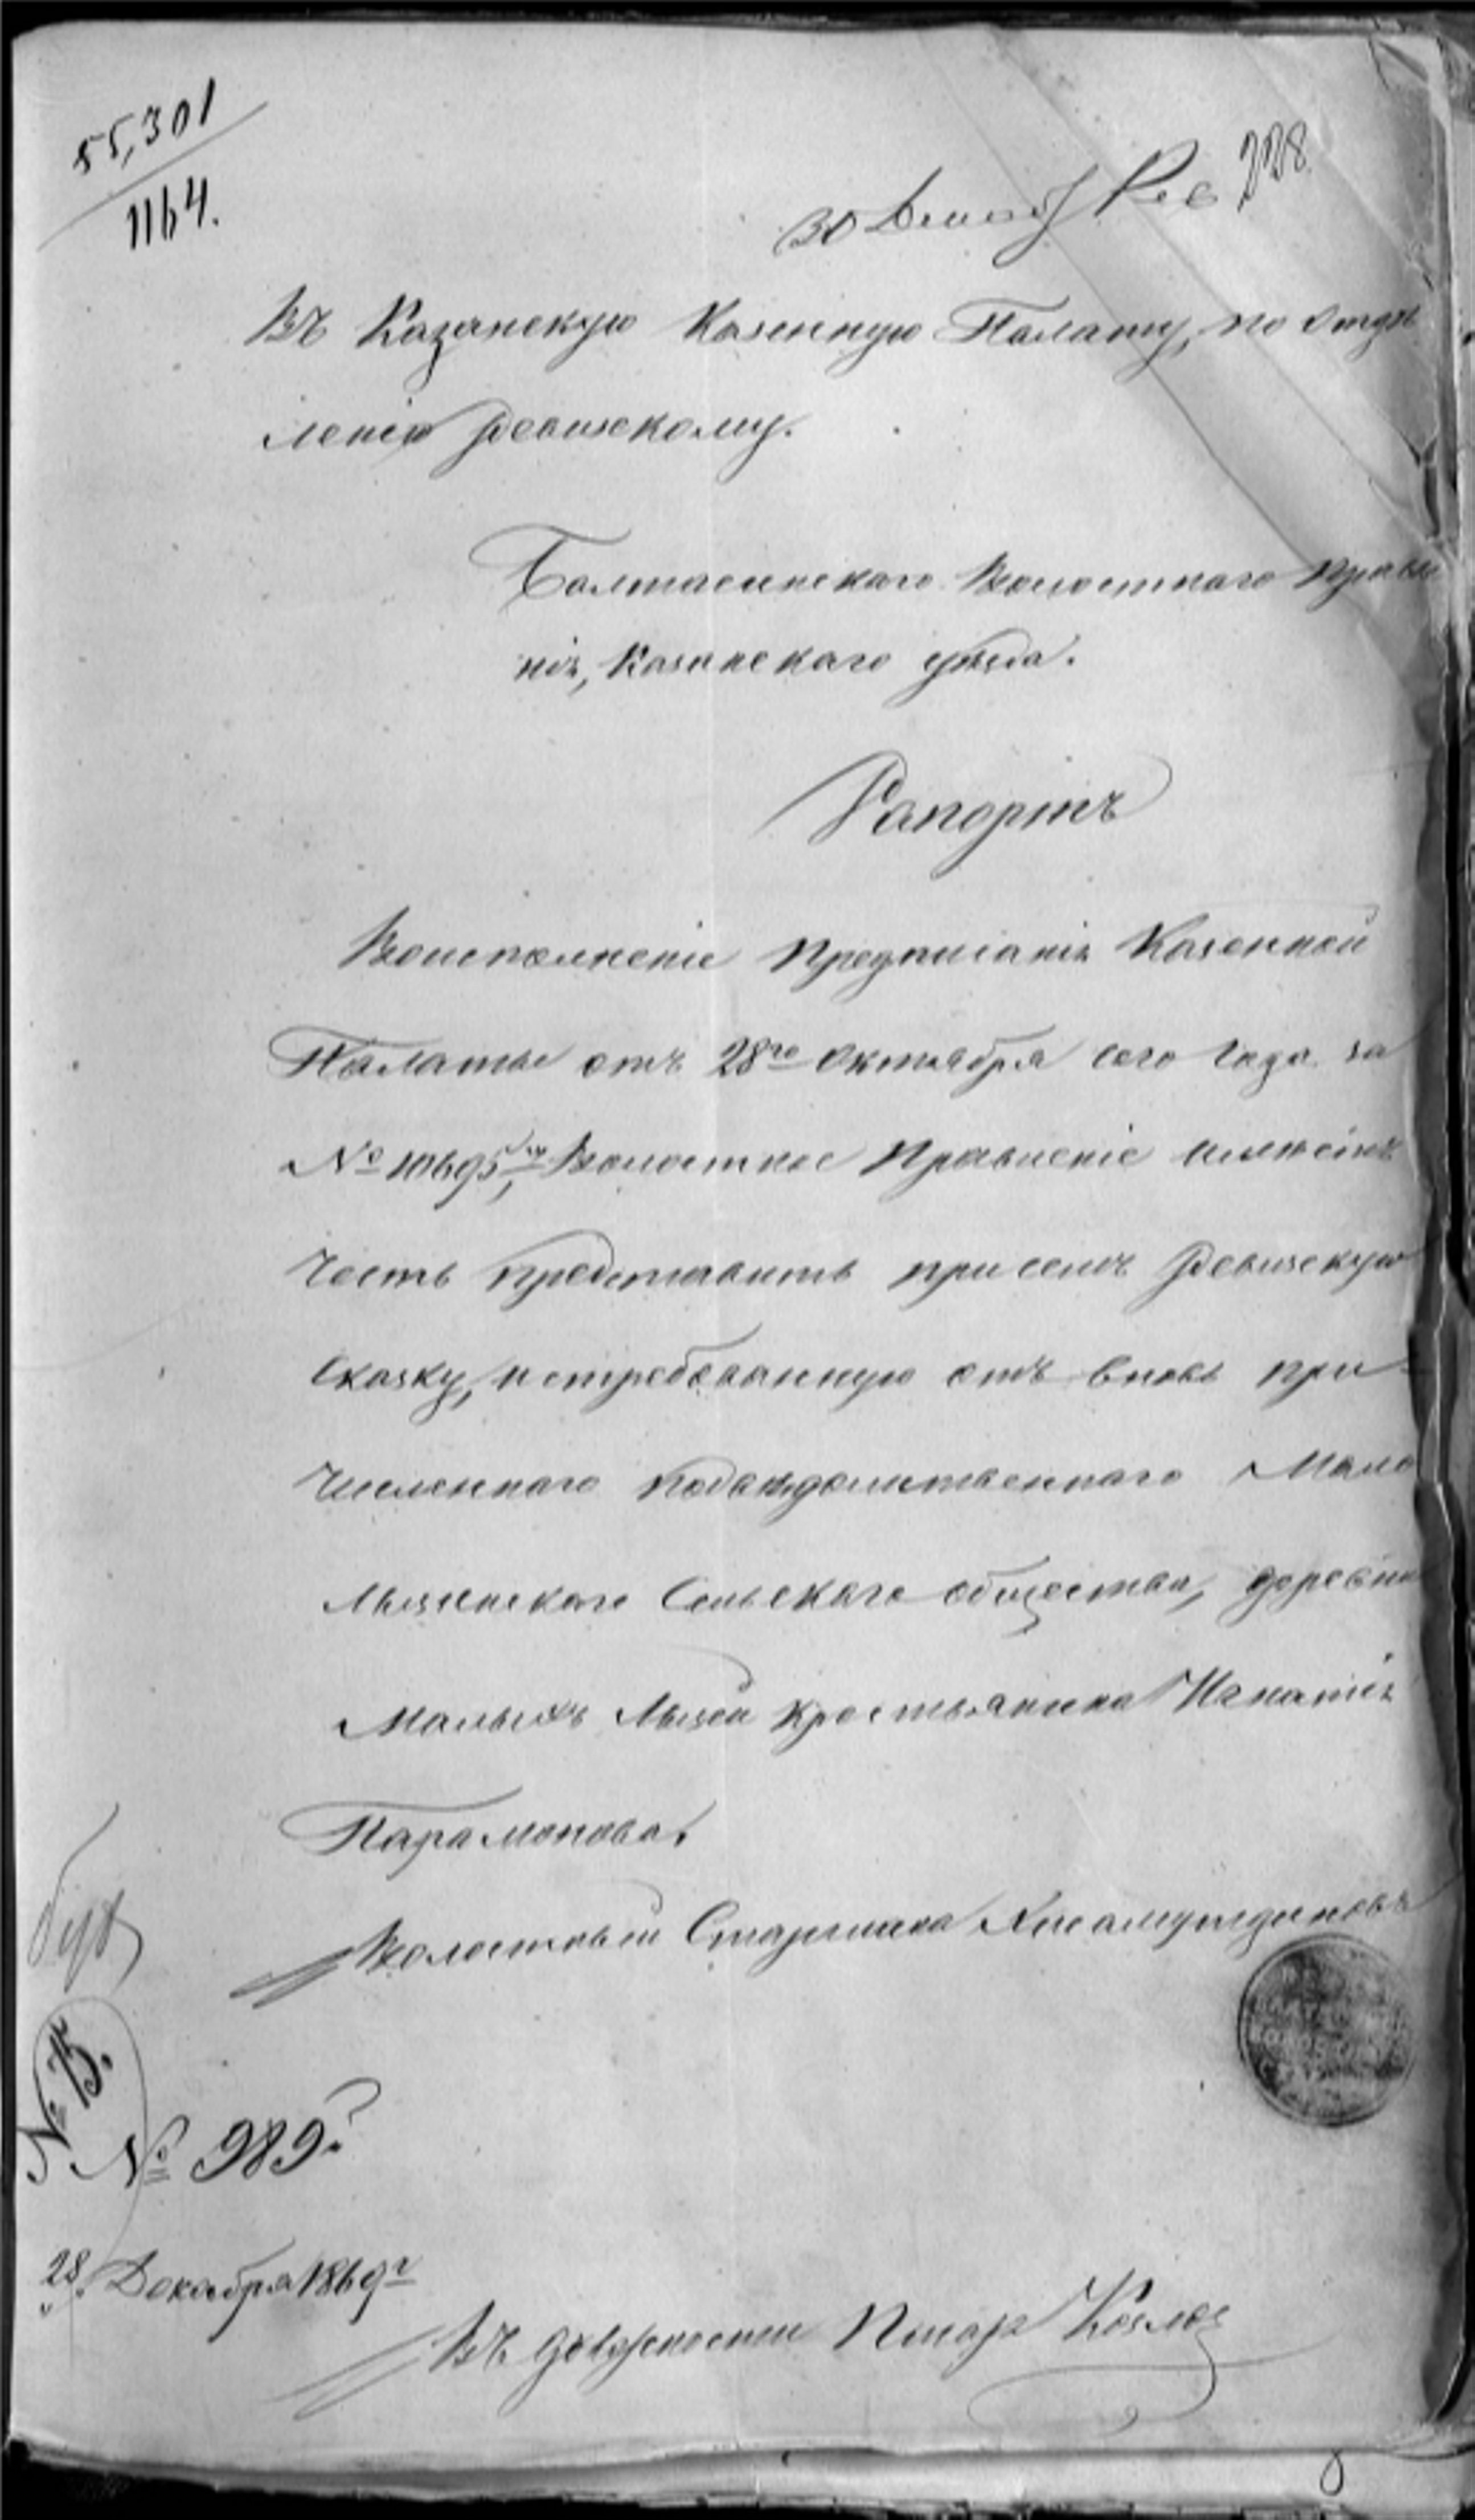 55,301
1164.
30 Декаб Рев 228
Въ Казанскую Казенную Палату, по Отдѣ
ленію Ревизскому.
Балтасинскаго Волостнаго Правле
нія, Казанскаго уѣзда.
Рапортъ
Воисполненіе Предписанія Казенной
Палаты отъ 28го Октября сего Года за
№ 10695, Волостное Правленіе имѣетъ
Честь представить при семъ Ревизскую
Сказку, истребованную отъ вновь при
численнаго подвѣдомственнаго Мало
Лызинскаго Сельскаго общества, деревни
Малыхъ Лызей крестьянина Игнатія
Парамонова.
Волостный Старшина Хисамутдиновъ
№ 75.
№ 989.
28 Декабря 1869г
Въ должности Писаря Козлов